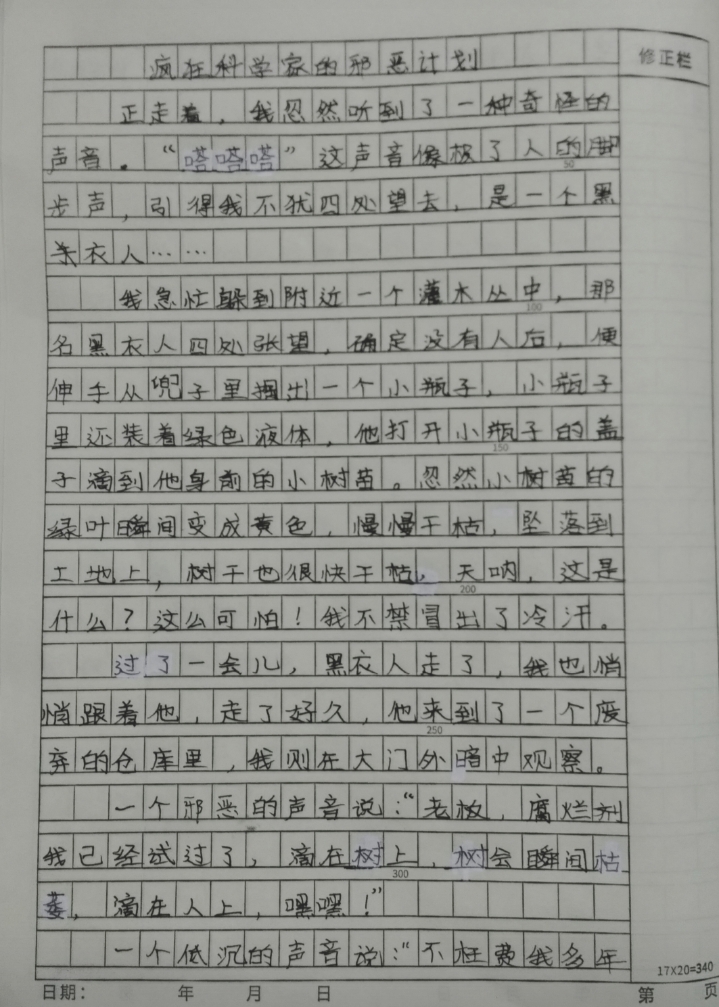 疯狂科学家的邪恶计划
修正栏
正走着，我忽然听到了一种奇怪的
声音。“嗒嗒嗒”这声音像极了人的脚
50
步声，引得我不犹四处望去，是一个黑
衣人……
我急忙躲到附近一个灌木丛中，那
100
名黑衣人四处张望，确定没有人后，便
伸手从兜子里掏出一个小瓶子，小瓶子
里还装着绿色液体，他打开小瓶子的盖
150
子滴到他身前的小树苗。忽然小树苗的
绿叶瞬间变成黄色，慢慢干枯，坠落到
土地上，树干也很快干枯，天呐，这是
200
什么？这么可怕！我不禁冒出了冷汗。
过了一会儿，黑衣人走了，我也悄
悄跟着他，走了好久，他来到了一个废
250
弃的仓库里，我则在大门外暗中观察。
一个邪恶的声音说：“老板，腐烂剂
我已经试过了，滴在树上，树会瞬间枯
300
萎，滴在人上，嘿嘿！”
一个低沉的声音说：“不枉费我多年
17X20=340
日期： 年 月 日 第 页